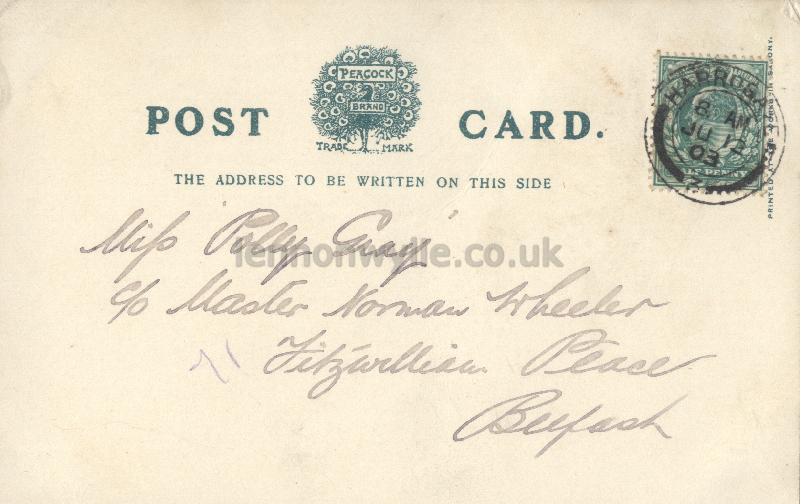 PEACOCK
BRAND
TRADE MARK
POST CARD.
THE ADDRESS TO BE WRITTEN ON THIS SIDE
HABROSA
8 AM
JU 12
03
PENNY
PRINTED AT
SAXONY.
Miss 'Polly Gray'
lennonwylie.co.uk
c/o Master Norman Wheeler
Fitzwilliam Peace
Belfast